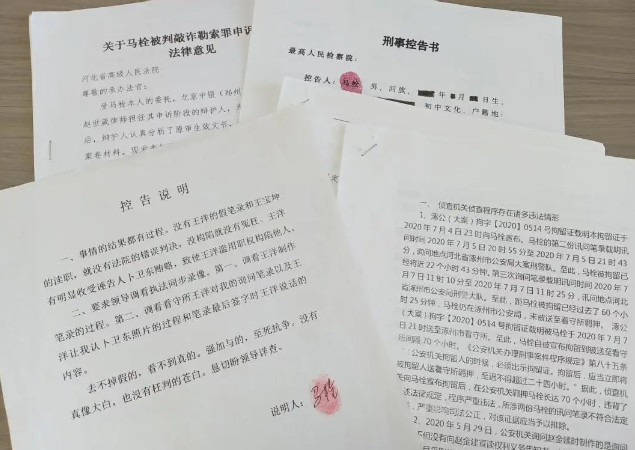 关于马栓被判敲诈勒索罪申诉
法律意见
河北省高级人民法院
尊敬的承办法官：
受马栓本人的委托，北京中银（郑州
赵世葳律师担任其申诉阶段的辩护人，
后，辩护人认真分析了原审生效文书，
案卷材料，
刑事控告书
最高人民检察院：
控告人：马栓，男，回族，
年 月 日生，
初中文化，户籍地：
控告说明
一、事情的结果都有过程。没有王洋的假笔录和王宝坤
的渎职，就没有法院的错误判决，没构陷就没有冤枉。王洋
有明显收受被告人卜卫东贿赂，致使王洋滥用职权构陷他人，
二、要求领导调看执法同步录像。第一，调看王洋制作
笔录的过程。第二，调看看守所王洋对我的询问笔录以及王
洋让我认卜卫东照片的过程和笔录最后签字时王洋说话的
内容。
去不掉假的，看不到真的。强加与的，至死抗争。没有
真像大白，也没有枉判的苍白。恳切盼领导详查。
说明人：马栓
一、侦查机关侦查程序存在诸多违法情形
1、涿公（大案）拘字【2020】0514 号拘留证载明本拘留证于
2020 年 7 月 4 日 23 时向马栓宣布。马栓的第二份讯问笔录载明讯
问时间 2020 年 7 月 5 日 20 时 55 分至 2020 年 7 月 5 日 21 时 43
分，询问地点河北省涿州市公安局大案刑警队。至此，马栓被拘留已
经将近 22 个小时 43 分钟。第三次询问笔录载明讯问时间 2020 年 7
月 7 日 11 时 10 分至 2020 年 7 月 7 日 11 时 25 分，讯问地点河北
省涿州市公安局刑警大队。至此，距马栓被拘留已经过去了 60 个小
时 25 分钟，马栓仍在涿州市公安局，未被送至看守所羁押，涿公
（大案）拘字【2020】0514 号拘留证载明被马栓于 2020 年 7 月 7
日 21 时送至涿州市看守所。至此，马栓自被宣布拘留到被送至看守
所间隔 70 个小时。《公安机关办理刑事案件程序规定》第八十五条
公安机关拘留人的时候，必须出示拘留证。拘留后，应当立即将
被拘留人送看守所羁押，至迟不得超过二十四小时。” 据此，侦查机
关向马栓宣布拘留后，在公安机关羁押马栓长达 70 个小时，违背了
法律规定，程序严重违法，所涉两份马栓的讯问笔录不符合法定
，严重影响司法公正，对该证据应当予以排除。
2、2020 年 5 月 29 日，公安机关询问赵金建时制作的是询
不但没有向赵金建宣读权利义务告知书